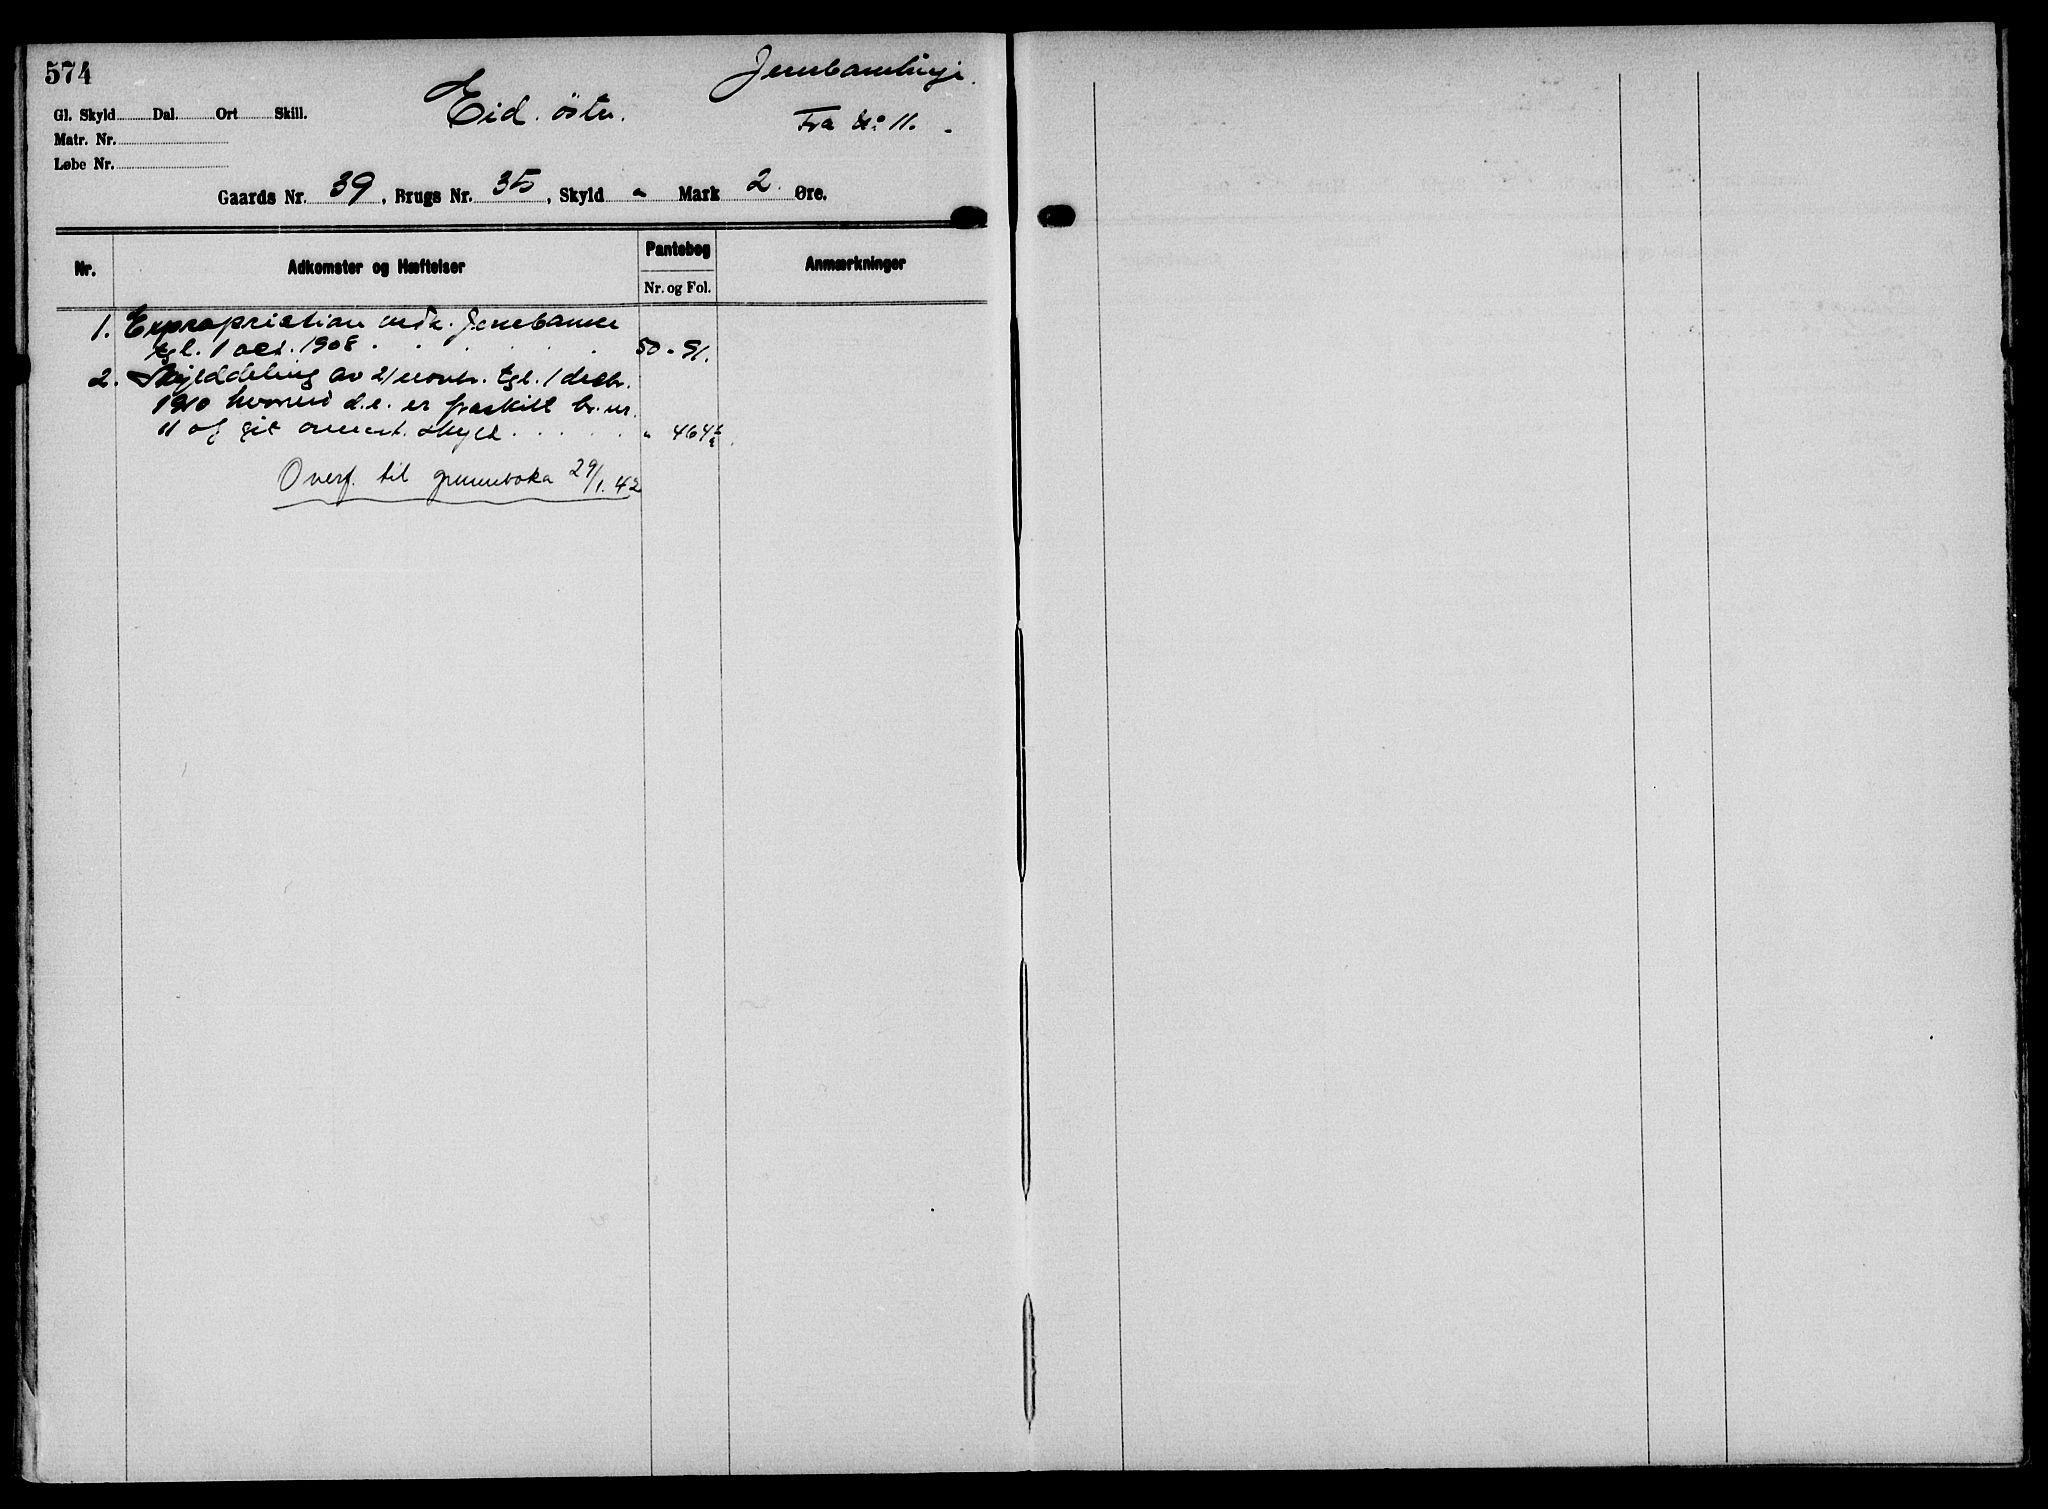 574
Jernbanelinje.
Eid. östr.
Fra No 11.
Gl. Skyld Dal. Ort Skill.
Matr. Nr.
Løbe Nr.
Gaards Nr. 39, Brugs Nr. 35, Skyld " Mark 2 Øre.
Nr. Adkomster og Hæftelser Pantebog Anmærkninger
Nr. og Fol.
1. Expropriation vedk. Jernbanen
tgl. 1 oct. 1908 . . . . . 50 - 91.
2. Skylddeling av 21 novbr. tgl. 1 decbr.
1910 hvorved d.e. er fraskilt br. nr.
11 og git anført skyld . . . . " 464
Overf. til grunnboka 29/1. 42